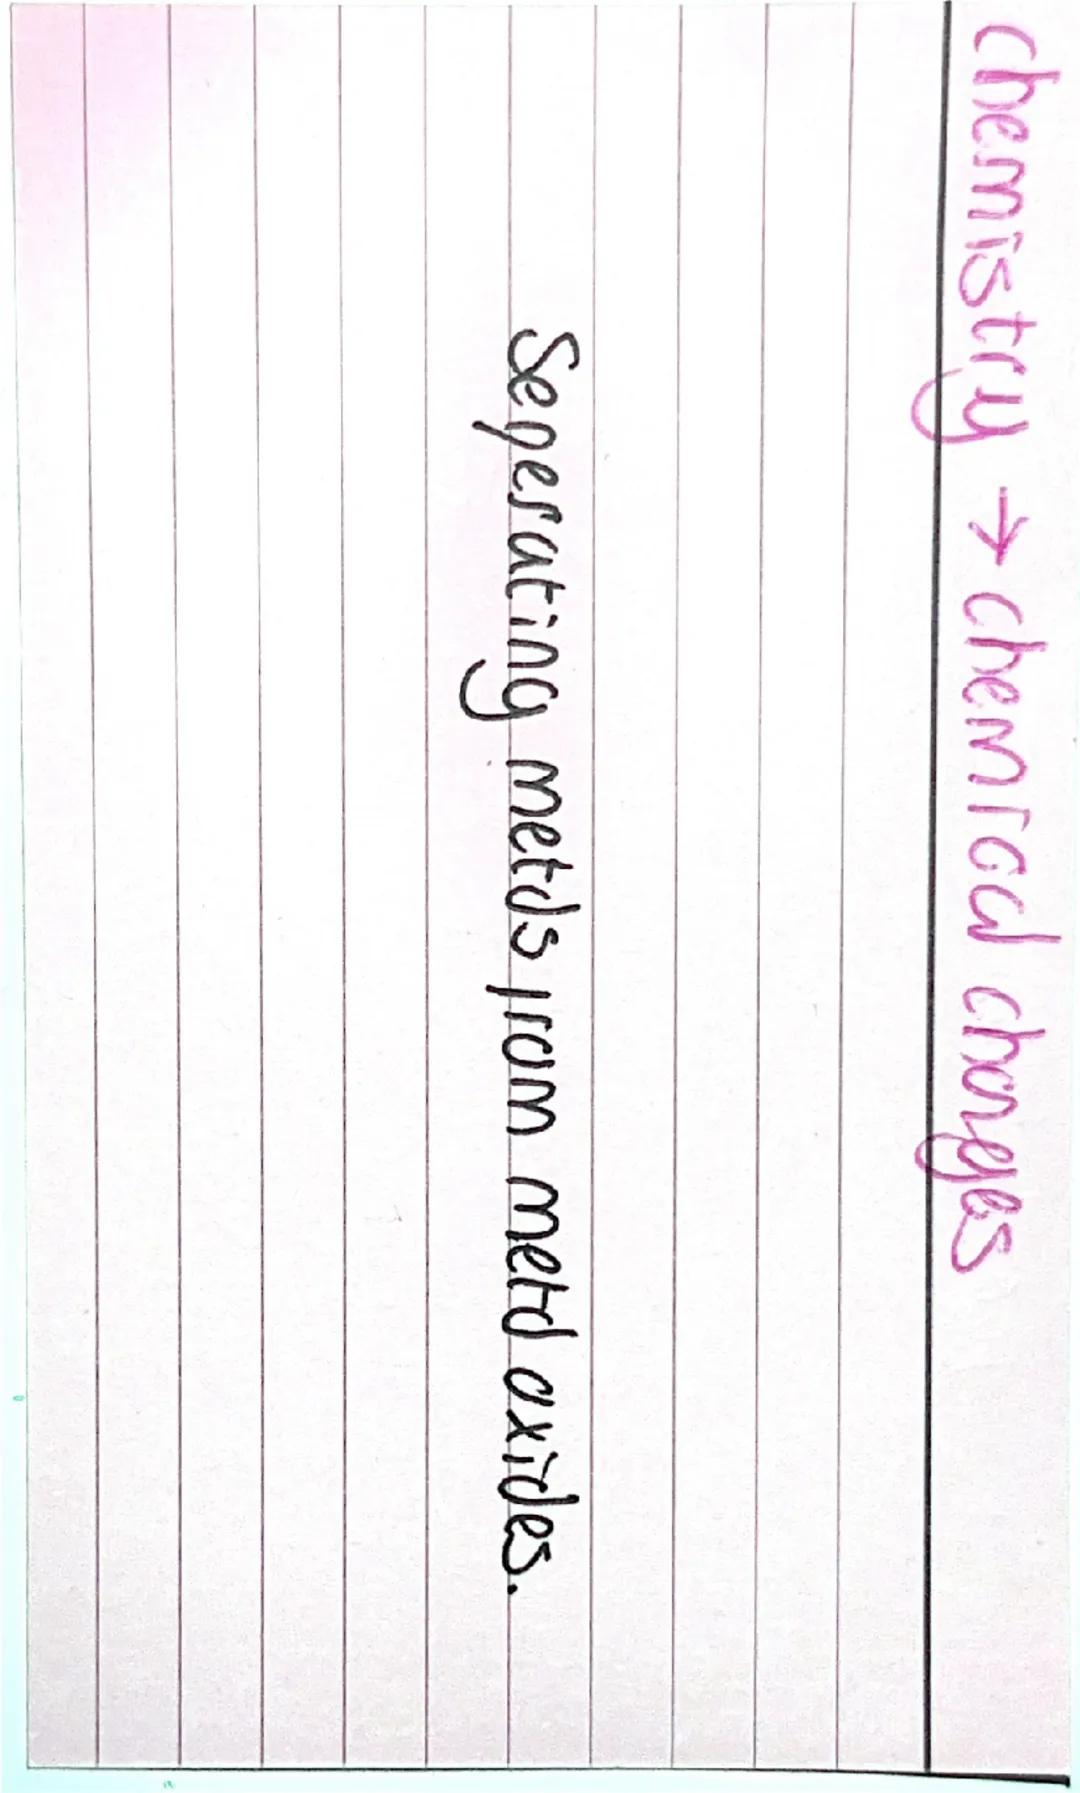 chemistry → chemical changes
Seperating metals from metal oxides.